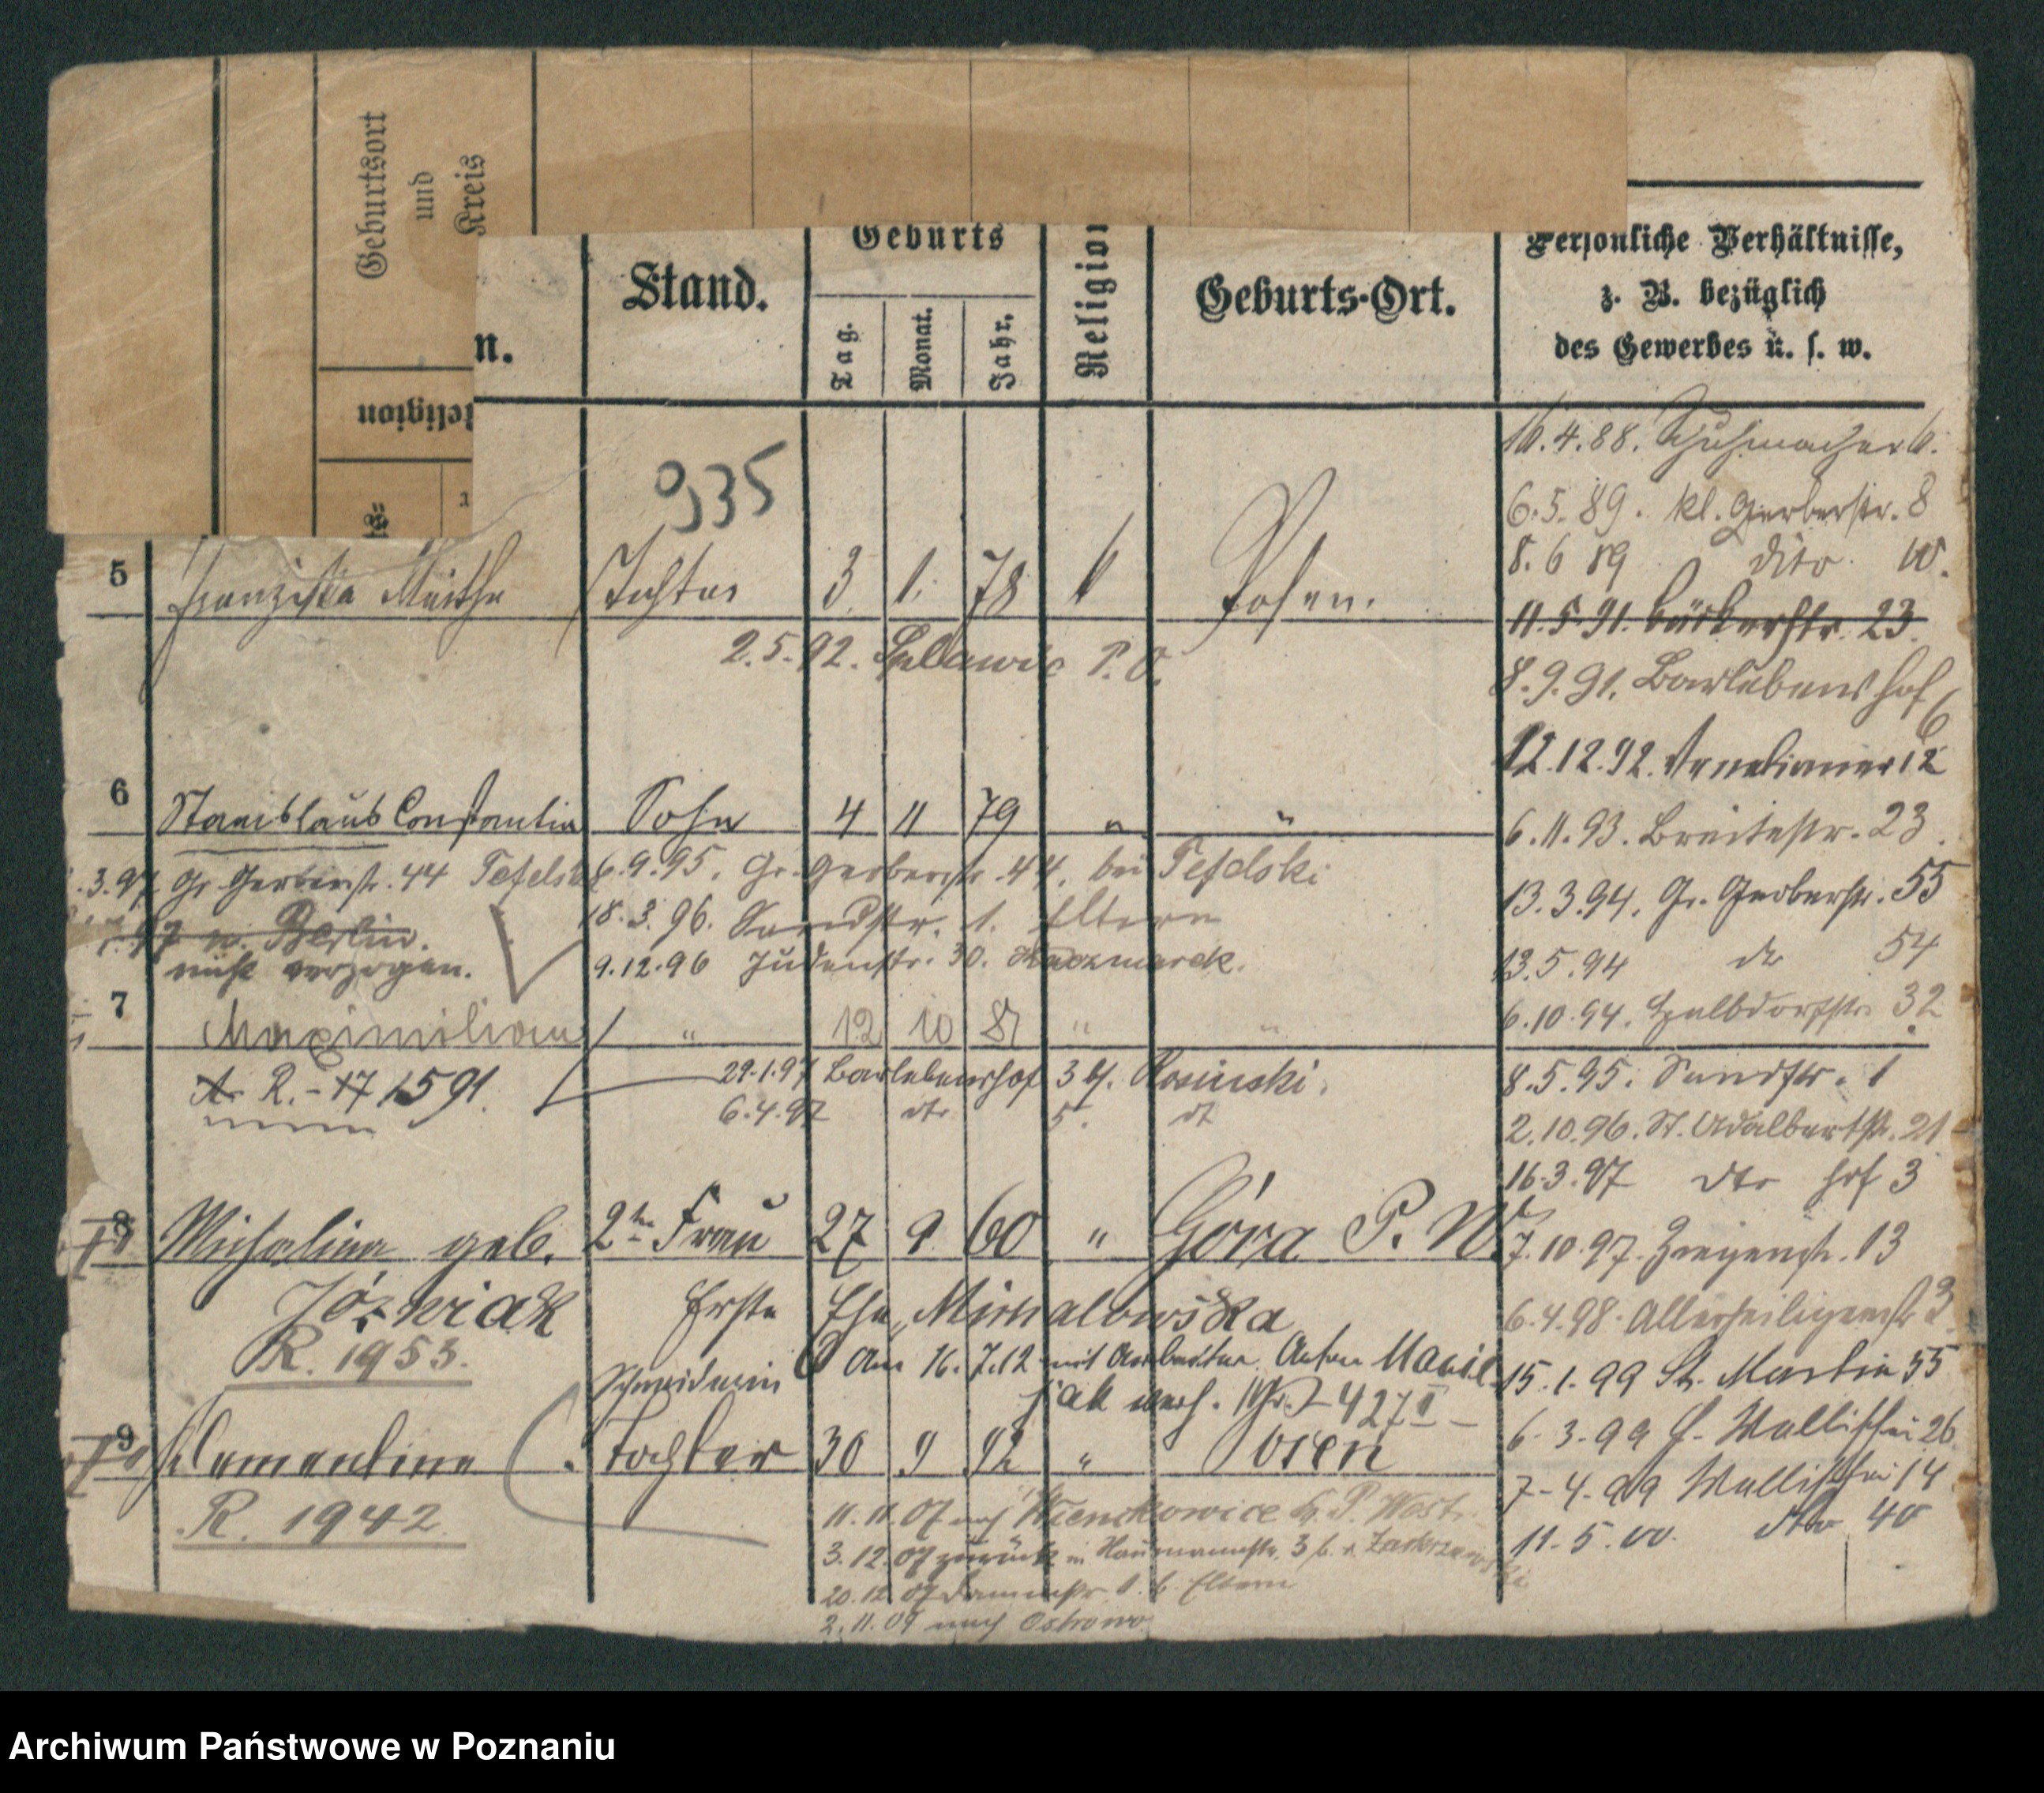 Geburtsort
und
Kreis
Religion
n.
Stand.
Geburts
Tag.
Monat.
Jahr.
Religion
Geburts-Ort.
Persönliche Verhältnisse,
z. B. bezüglich
des Gewerbes u. s. w.
935
16.4.88. Schuhmacher 6.
6.5.89. kl. Gerberstr. 8
8.6 89 dito 10.
11.5.91. Bäckerstr. 23.
8.9.91. Barlebenshof 6
12.12.92. Venetianer 12
6.11.93. Breitestr. 23.
13.3.94. Gr. Gerberstr. 55
13.5.94 do 54
6.10.94. 32
8.5.95. Sandstr. 1
2.10.96. St. Adalbertstr. 21
16.3.97 dto hof 3
7.10.97. Ziegenstr. 13
6.4.98. Allerheiligenstr. 3
15.1.99 St. Martin 55
6.3.99 Wallischei 26
7-4-99 Wallischei 14
11-5.00. dto 40
5 Franziska Tochter 3. 1. 78 k Posen.
2.5.92. P.O.
6 Stanislaus Constantin Sohn 4 11 79 " "
.3.97 Gr. Gerberstr. 44 Tefelski 6.9.95. Gr. Gerberstr. 44. bei Tefelski
97 n. Berlin. 18.3.96. Sandstr. 1. Eltern
nicht verzogen. 9.12.96 Judenstr. 30. Kaczmarek.
7 Maximilian " 12 10 87 " "
R.-17 1591. 29.1.97 Barlebenshof 3 bf. Rosinski.
6.4.97 dto 5. dt
8 Michalina geb. 2te Frau 27 9 60 " Góra P. W.
Józwiak Erste Ehe Michalowska
R. 1953. Schneiderin am 16.7.12 mit Arbeiter Anton Maciejak verh. 427 II
9 Clementine Tochter 30 9 92 " Posen
R. 1942. 11.11.07 nach P. West.
3.12.07 zurück in Naumannstr. 3 b. Zakrzewski
20.12.07 Dammstr. 1. b. Eltern
2.11.09 nach Ostrowo
Archiwum Państwowe w Poznaniu